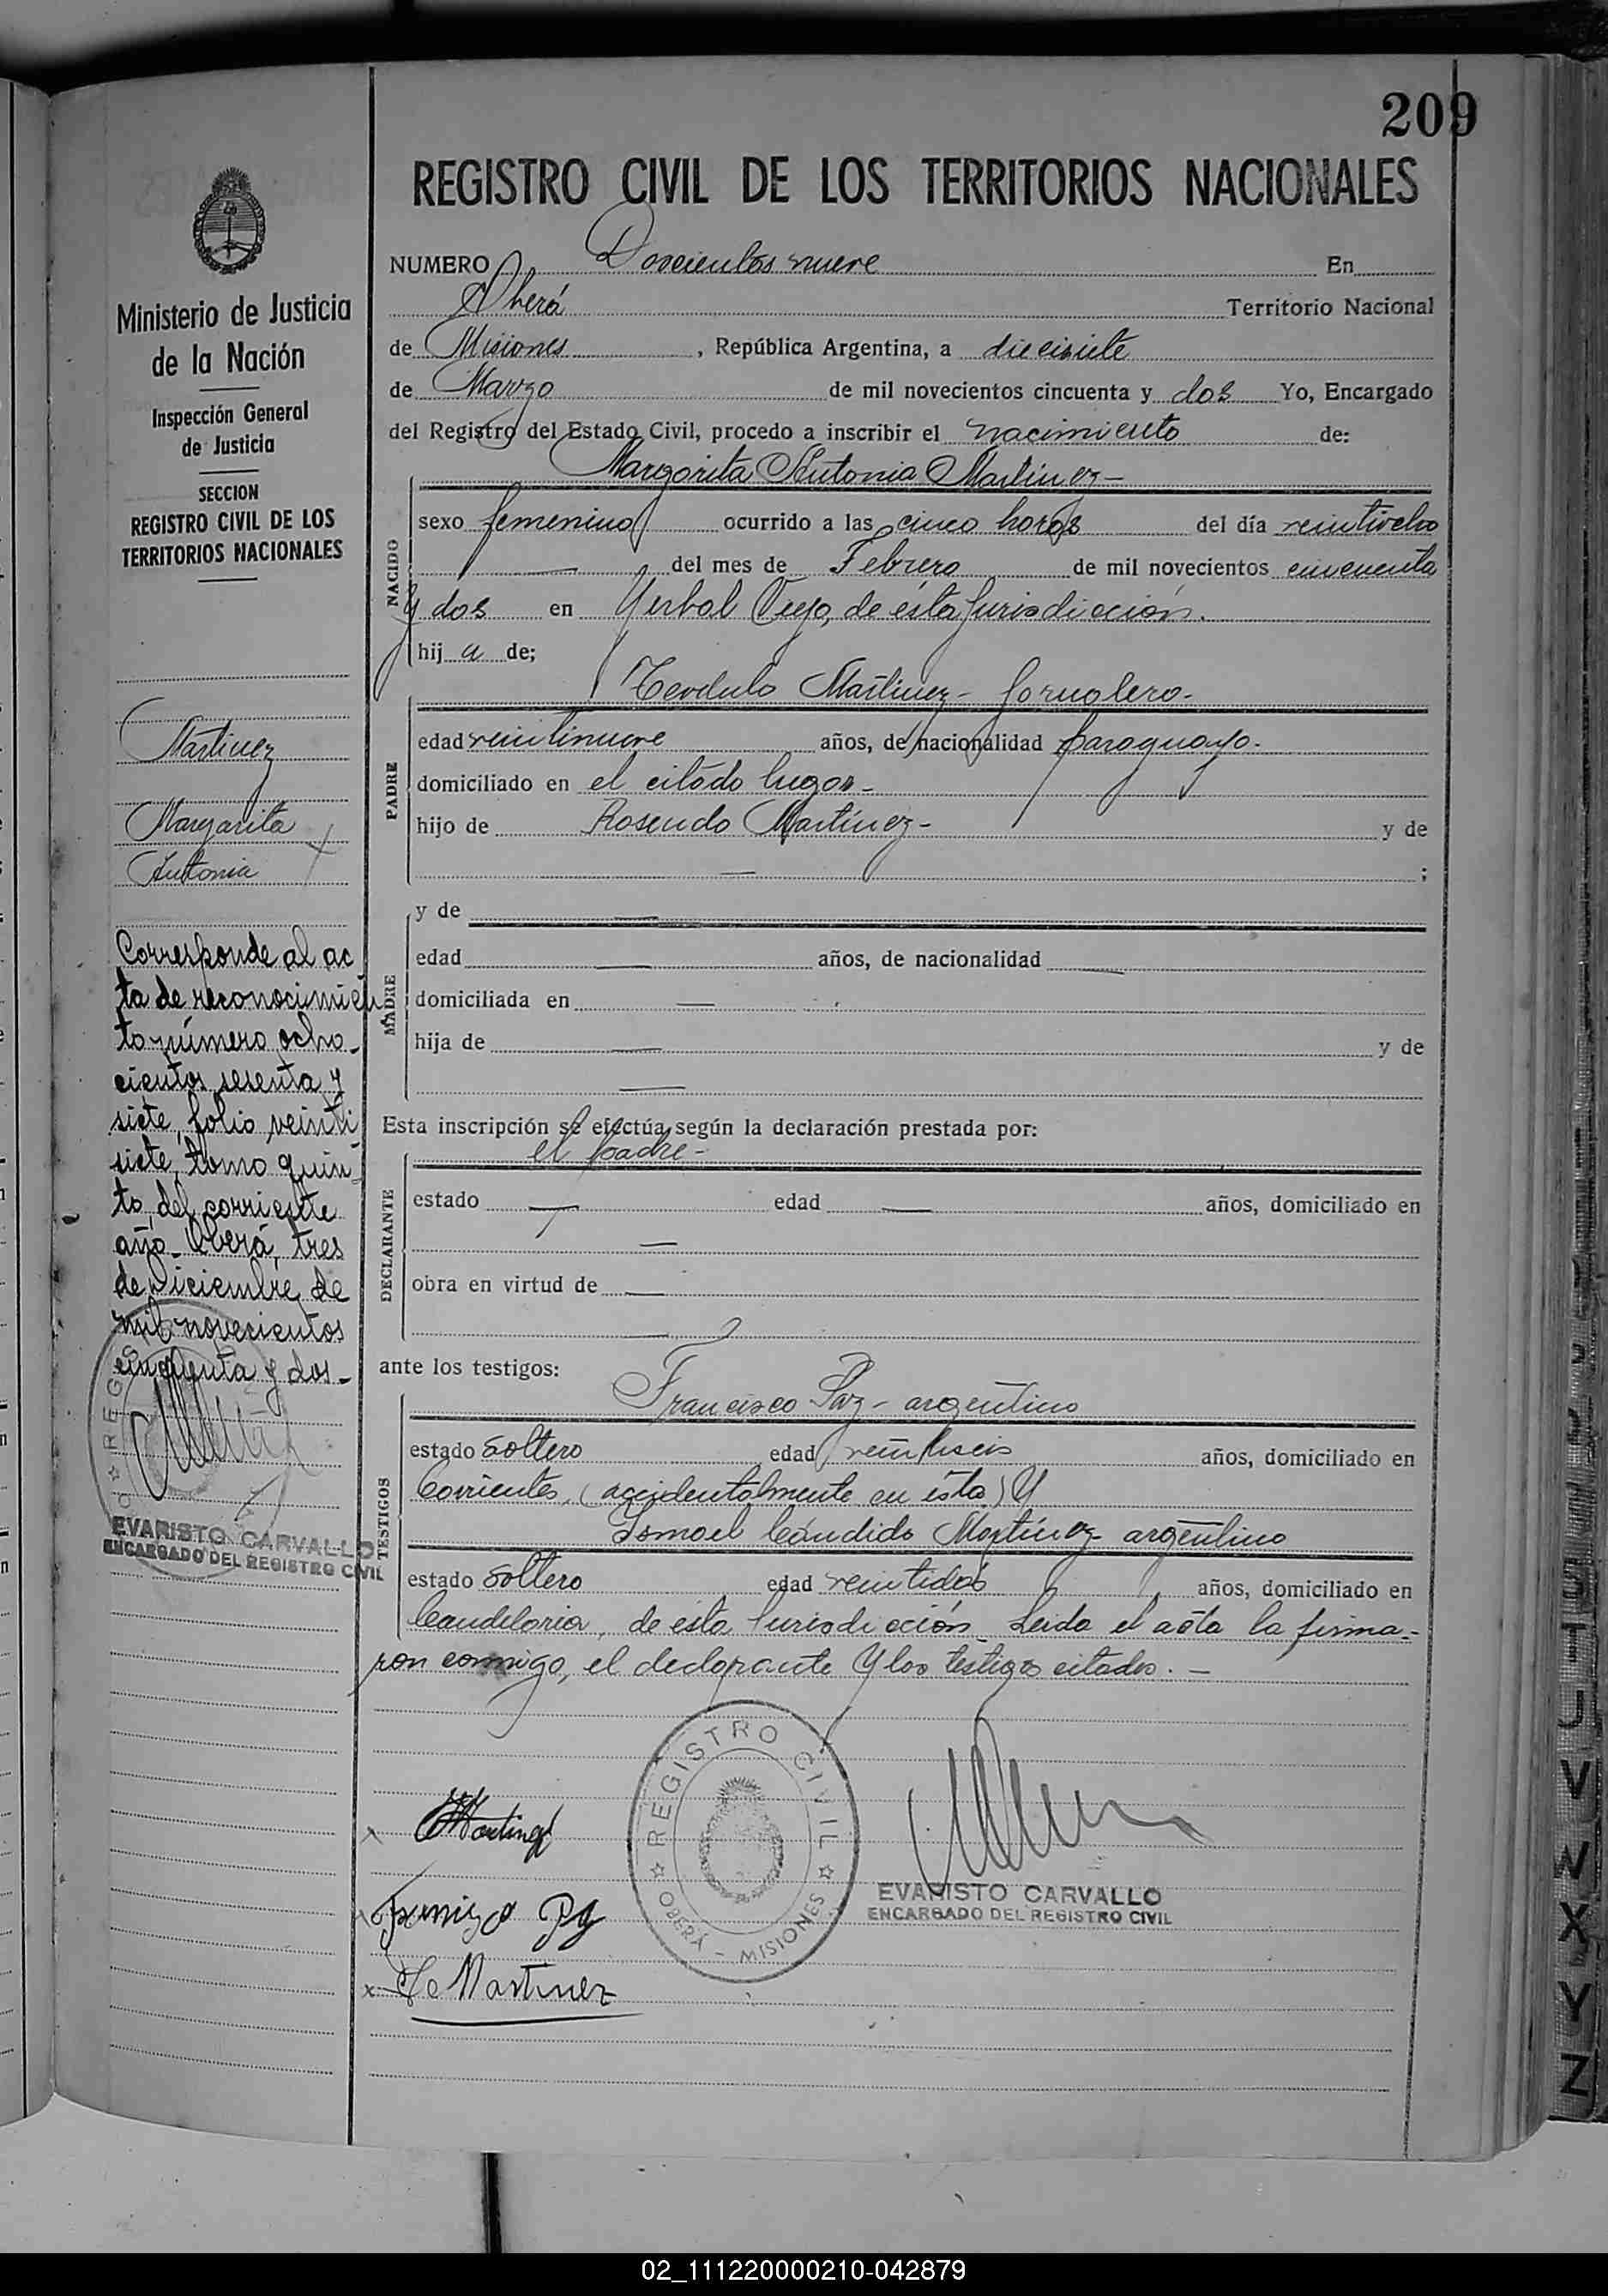 209
REGISTRO CIVIL DE LOS TERRITORIOS NACIONALES
Ministerio de Justicia
de la Nación
Inspección General
de Justicia
SECCION
REGISTRO CIVIL DE LOS
TERRITORIOS NACIONALES
Martinez
Margarita
Antonia
Corresponde al ac
ta de reconocimien
to número ocho
cientos sesenta y
siete, folio veinti
siete, tomo quin
to, del corriente
año. Oberá, tres
de Diciembre de
mil novecientos
cincuenta y dos.-
EVARISTO CARVALLO
ENCARGADO DEL REGISTRO CIVIL
NUMERO Doscientos nueve En
Oberá Territorio Nacional
de Misiones, República Argentina, a diecisiete
de Marzo de mil novecientos cincuenta y dos Yo, Encargado
del Registro del Estado Civil, procedo a inscribir el nacimiento de:
Margarita Antonia Martinez-
NACIDO
sexo femenino ocurrido a las cinco horas del día veintiocho
— del mes de Febrero de mil novecientos cincuenta
y dos en Yerbal Viejo, de ésta Jurisdicción.
hij a de;
Teodulo Martinez- Jornalero-
PADRE
edad veintinueve años, de nacionalidad paraguayo.
domiciliado en el citado lugar-
hijo de Rosendo Martínez- y de
— ;
MADRE
y de —
edad — años, de nacionalidad —
domiciliada en —
hija de — y de
—
Esta inscripción se efectúa según la declaración prestada por:
el padre-
DECLARANTE
estado — edad — años, domiciliado en
—
obra en virtud de —
—
ante los testigos:
Francisco Paz- argentino
TESTIGOS
estado Soltero edad veintiseis años, domiciliado en
Corrientes, (accidentalmente en ésta) Y
Ismael Cándido Martínez- argentino
estado Soltero edad veintidos años, domiciliado en
Candelaria, de esta Jurisdicción. Leida el acta la firma-
ron conmigo, el declarante y los testigos citados.-
REGISTRO CIVIL
OBERA - MISIONES
EVARISTO CARVALLO
ENCARGADO DEL REGISTRO CIVIL
Martinez
U
V
W
X
Y
Z
02_111220000210-042879